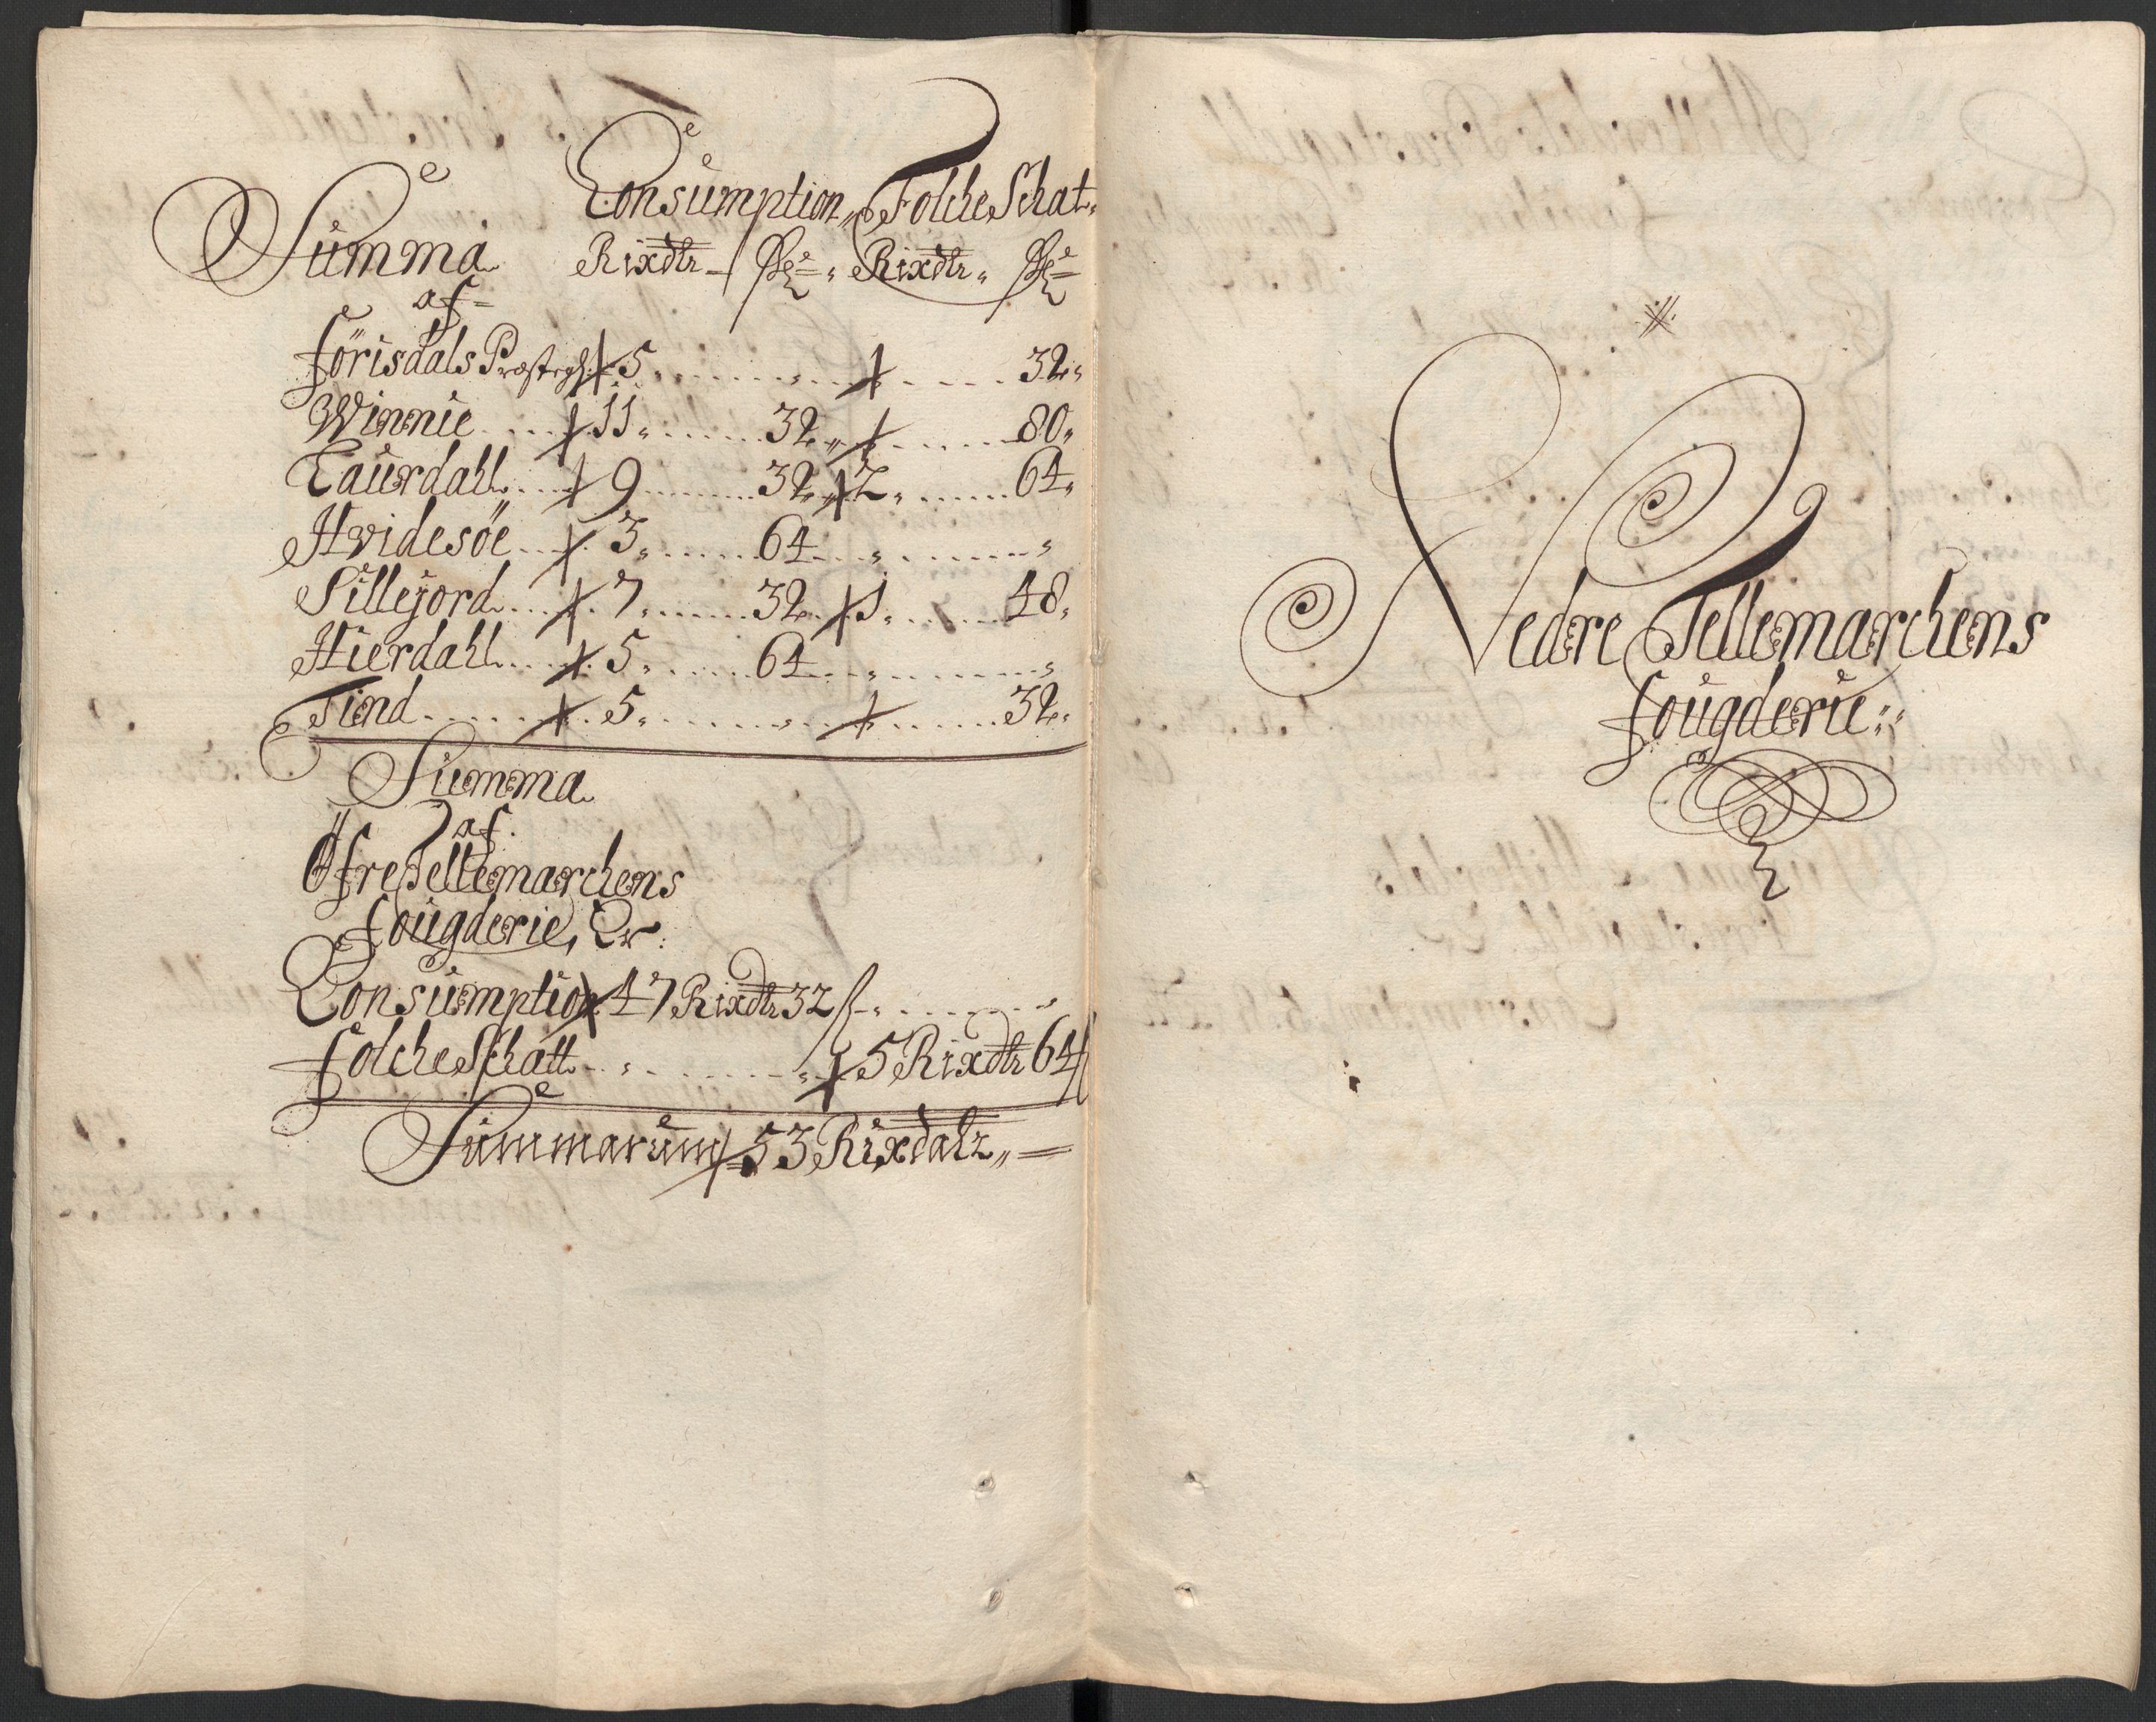 Consumption, FolcheSchat.
Summa Rixdlr – ß „ Rixdlr „ ß
af
Förisdals Præstegl: 5 „ „ 32 „
Winnie 11 „ 32 „ 80 „
Laurdahl 9 32 „ 2 „ 64 „
Hvidesöe 3 „ 64 „ „
Sillejord 7 „ 32 1 „ 48 „
Hierdahl 5 „ 64 „ „
Tind 5 „ „ 32 „
Summa
af
Öfre Tellemarchens
fougderie, Er:
Consumption 47 Rixdlr 32 ß „
folcheSchatt „ 5 Rixdlr 64 ß
Summarum 53 Rixdalr „ =
Nedre Tellemarchens
fougderie